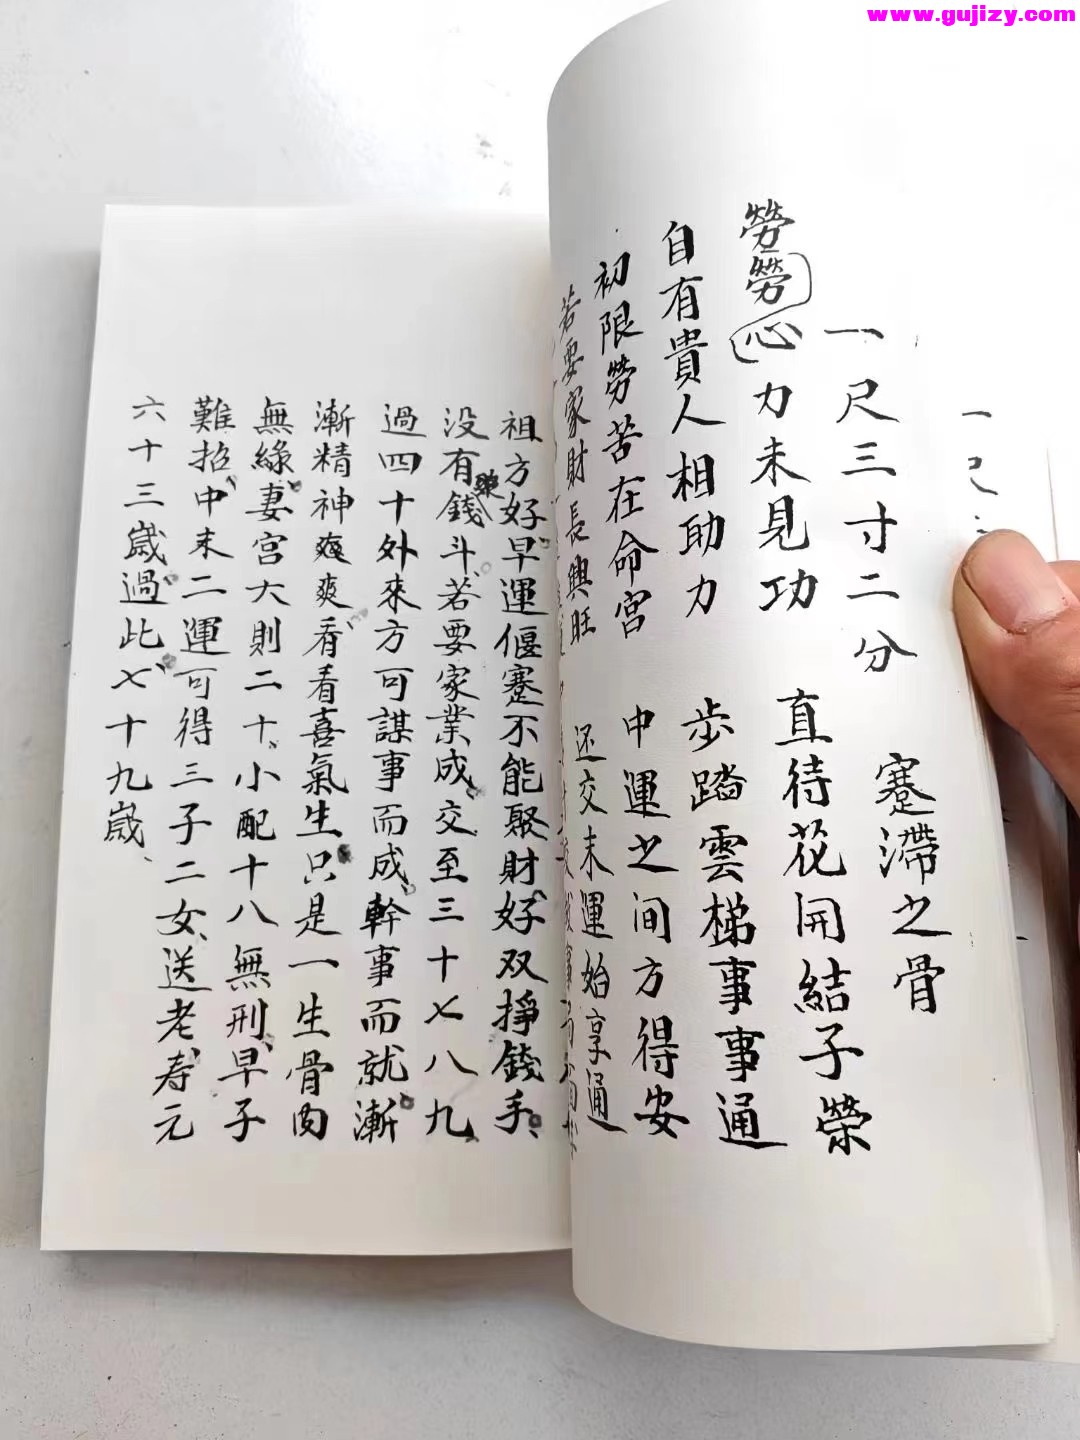 www.gujizy.com
一尺三寸二分 蹇滯之骨
勞勞心力未見功 直待花開結子榮
自有貴人相助力 步踏雲梯事事通
初限勞苦在命宮 中運之间方得安
若要家財長興旺 还交末運始享通
祖方好早運偃蹇不能聚財好双掙錢手
没有錢斗若要家業成交至三十七八九
過四十外來方可謀事而成幹事而就漸
漸精神爽爽看看喜氣生只是一生骨肉
無緣妻宮大則二十小配十八無刑早子
難招中末二運可得三子二女送老寿元
六十三歲過此七十九歲